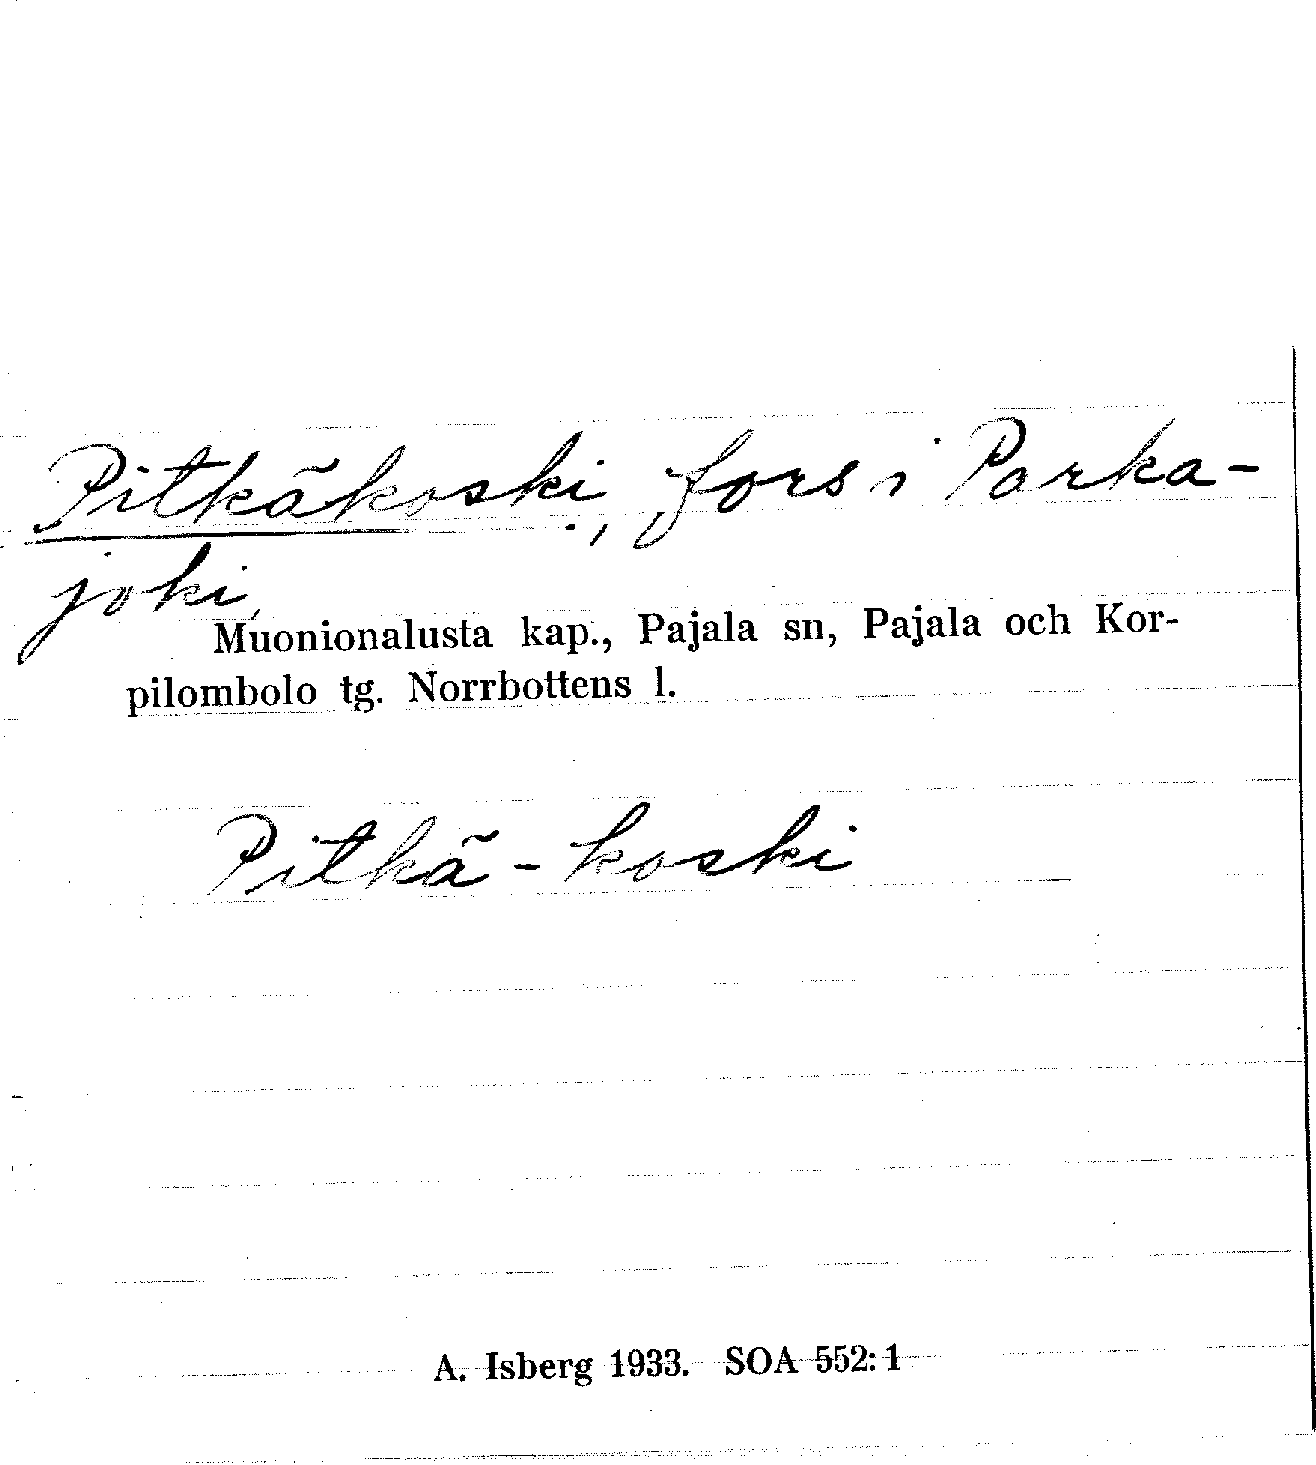 Pitkäkoski, fors i Parka-
joki,
Muonionalusta kap., Pajala sn, Pajala och Kor-
pilombolo tg. Norrbottens l.
Pitkä-koski
A. Isberg 1933. SOA 552:1